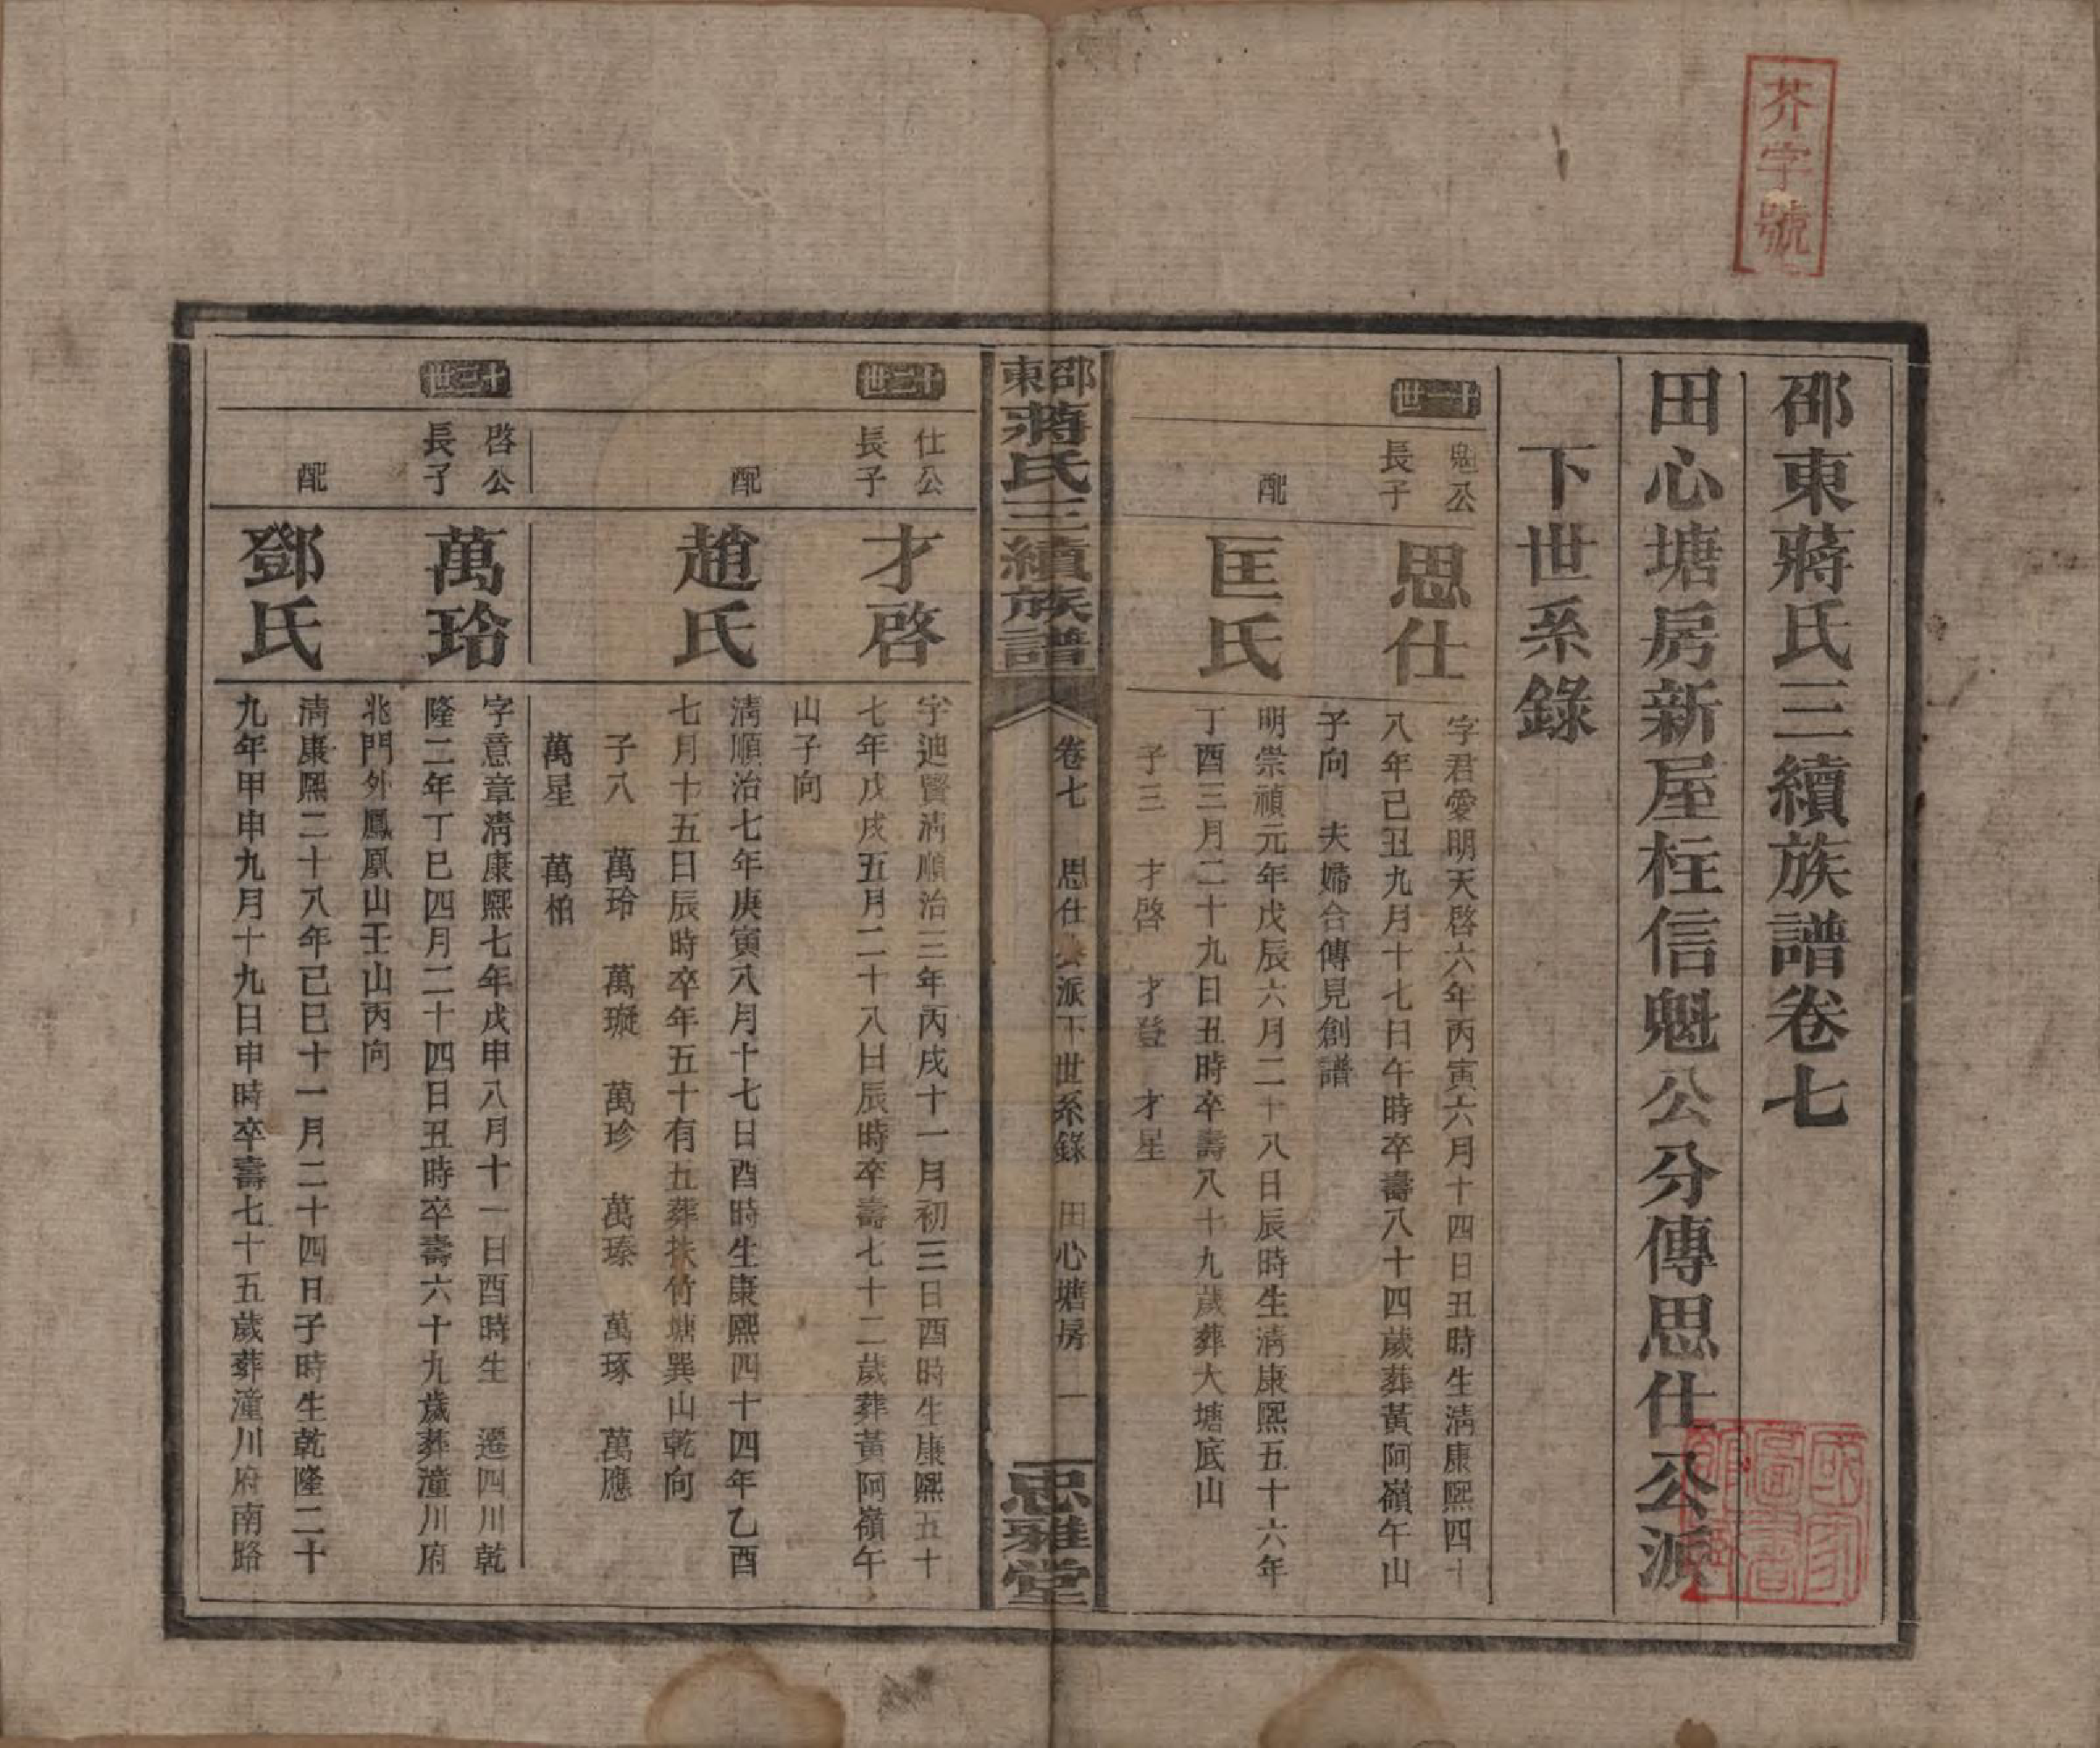 芥字號
邵東蔣氏三續族譜卷七
田心塘房新屋柱信魁公分傳思仕公派
下世系錄
十一世
魁公
長子
思仕
字君愛明天啓六年丙寅六月十四日丑時生清康熙四十
八年己丑九月十七日午時卒壽八十四歲葬黃阿嶺午山
子向　夫婦合傳見創譜
配
匡氏
明崇禎元年戊辰六月二十八日辰時生清康熙五十六年
丁酉三月二十九日丑時卒壽八十九歲葬大塘底山
子三　才啓　才登　才星
邵東蔣氏三續族譜
卷七　思仕公派下世系錄　田心塘房　一
忠雅堂
十二世
仕公
長子
才啓
字迪賢清順治三年丙戌十一月初三日酉時生康熙五十
七年戊戌五月二十八日辰時卒壽七十二歲葬黃阿嶺午
山子向
配
趙氏
清順治七年庚寅八月十七日酉時生康熙四十四年乙酉
七月十五日辰時卒年五十有五葬扶竹塘巽山乾向
子八　萬玲　萬璇　萬珍　萬瑧　萬琢　萬應
萬星　萬柏
十三世
啓公
長子
萬玲
字意章清康熙七年戊申八月十一日酉時生　遷四川乾
隆二年丁巳四月二十四日丑時卒壽六十九歲葬潼川府
北門外鳳凰山壬山丙向
配
鄧氏
清康熙二十八年己巳十一月二十四日子時生乾隆二十
九年甲申九月十九日申時卒壽七十五歲葬潼川府南路